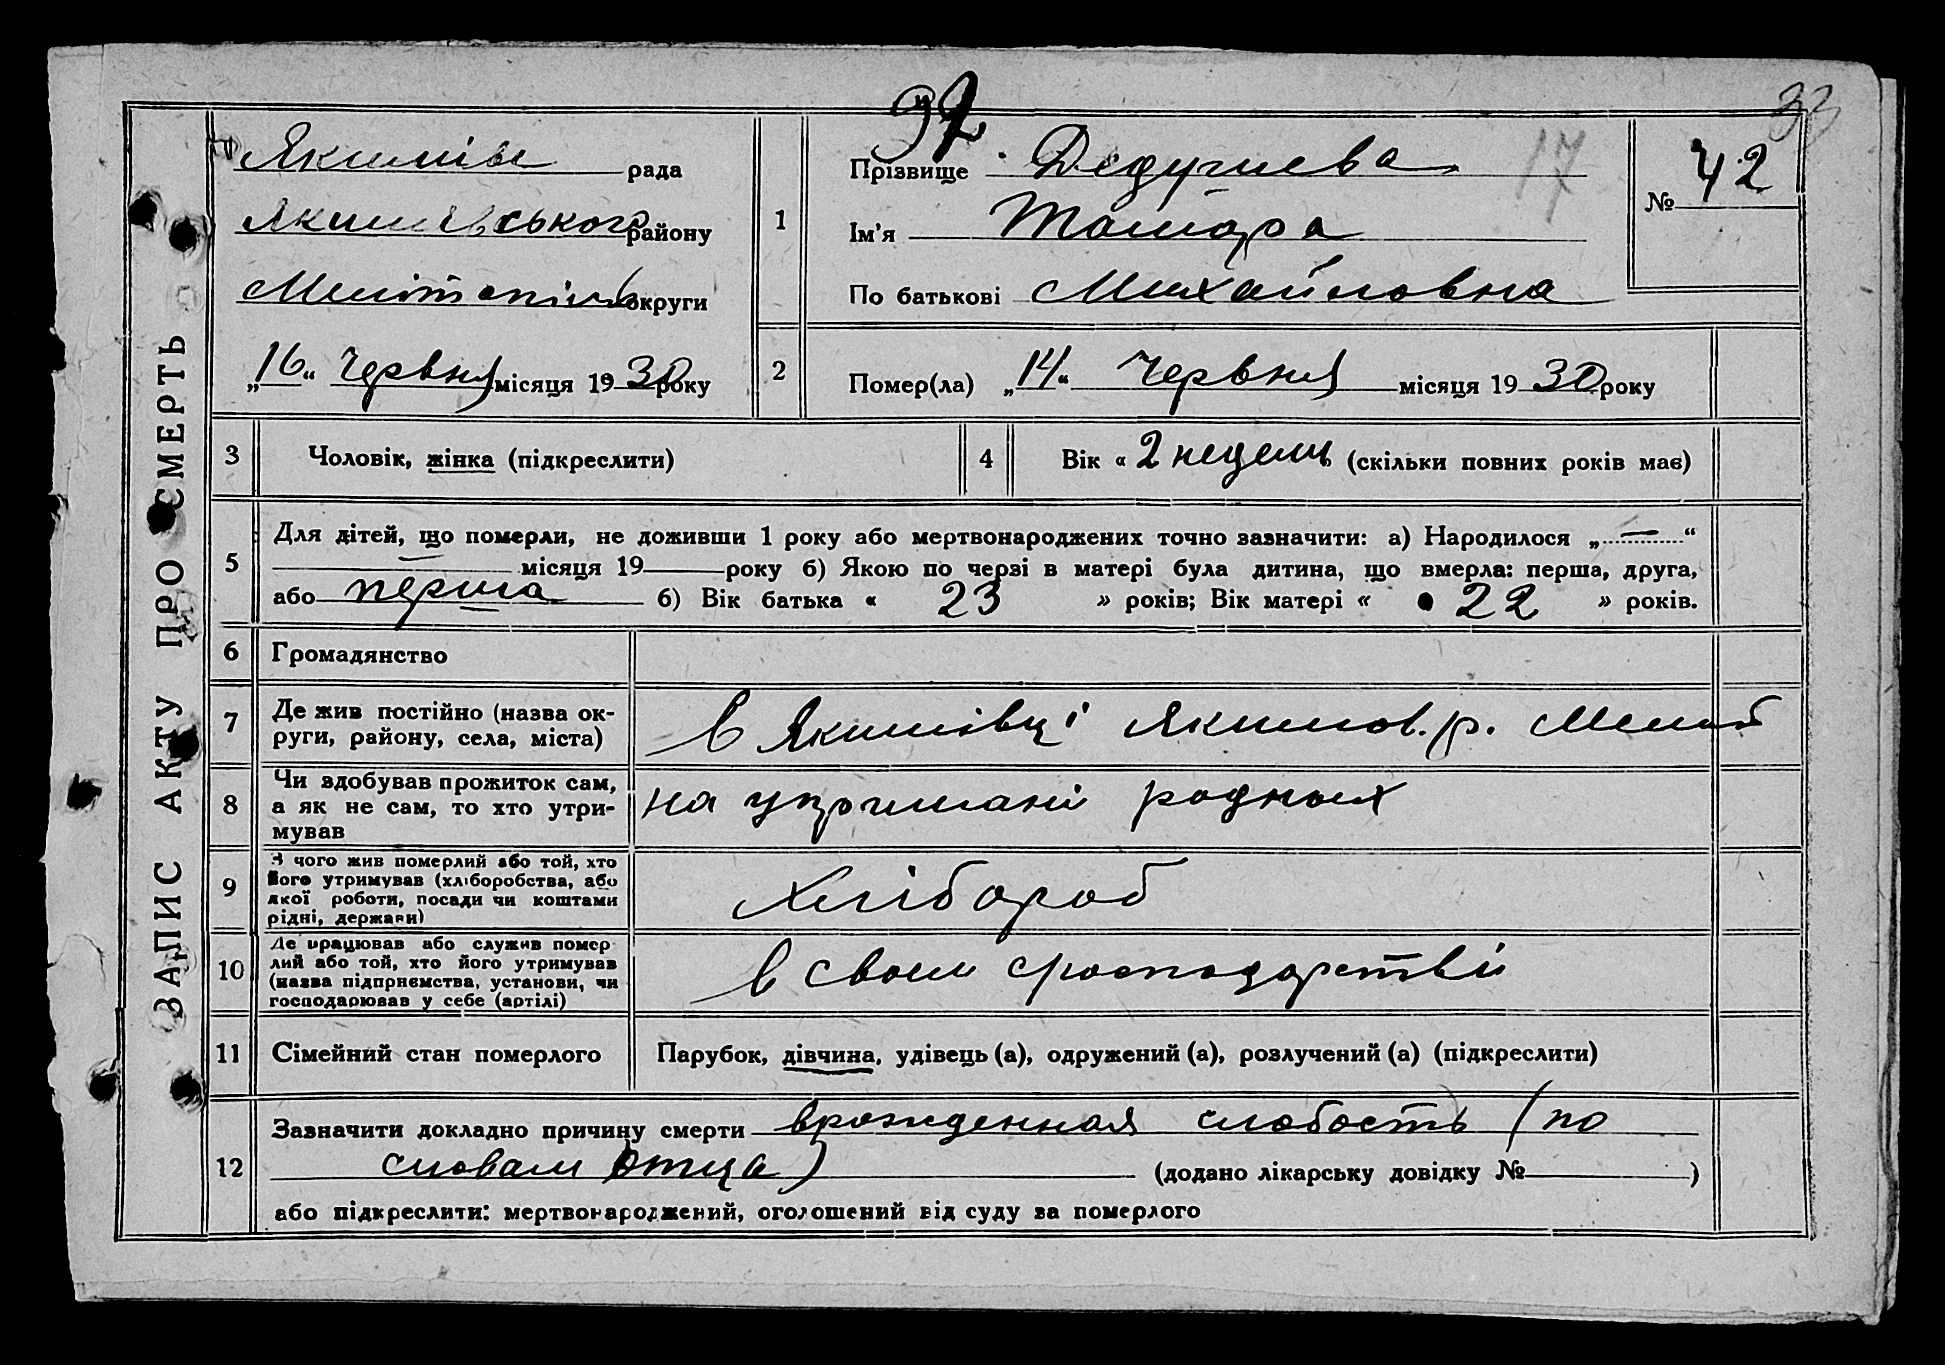 33
37
17
ЗАПИС АКТУ ПРО СМЕРТЬ
Якимівс рада
Якимівського району
Мелітопільс округи
„16“ червня місяця 1930 року
1
Прізвище
Ім'я Тамара
По батькові Михайловна
№ 42
2
Помер(ла) „14“ червня місяця 1930 року
3 Чоловік, жінка (підкреслити)
4 Вік « 2 недели » (скільки повних років має)
5 Для дітей, що померли, не доживши 1 року або мертвонароджених точно зазначити: а) Народилося „—“
— місяця 19— року б) Якою по черзі в матері була дитина, що вмерла: перша, друга,
або перша б) Вік батька « 23 » років; Вік матері « 22 » років.
6 Громадянство
7 Де жив постійно (назва ок-
руги, району, села, міста)
в Якимівці Якимов. р. Мелит
8 Чи здобував прожиток сам,
а як не сам, то хто утри-
мував
на утримані родных
9 З чого жив померлий або той, хто
його утримував (хліборобства, або
якої роботи, посади чи коштами
рідні, держави)
Хлібороб
10 Де працював або служив помер
лий або той, хто його утримував
(назва підприємства, установи, чи
господарював у себе (артілі)
в своем господарстві
11 Сімейний стан померлого Парубок, дівчина, удівець (а), одружений (а), розлучений (а) (підкреслити)
12 Зазначити докладно причину смерти врожденная слабость (по
словам отца) (додано лікарську довідку № )
або підкреслити: мертвонароджений, оголошений від суду за померлого